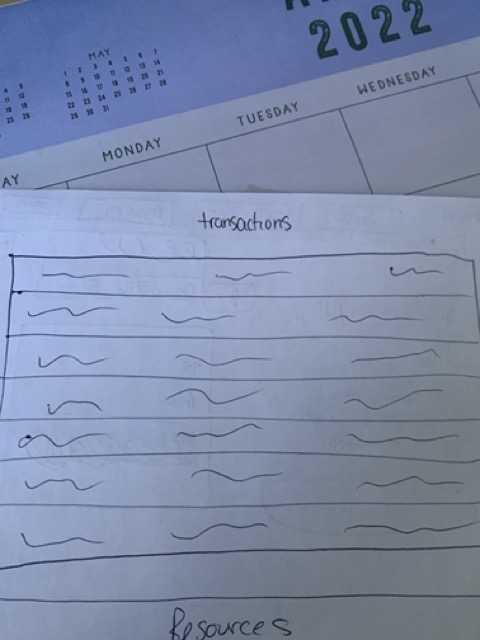 2022
MAY
1 2 3 4 5 6 7
8 9 10 11 12 13 14
15 16 17 18 19 20 21
22 23 24 25 26 27 28
29 30 31
MONDAY
TUESDAY
WEDNESDAY
AY
transactions
Resources